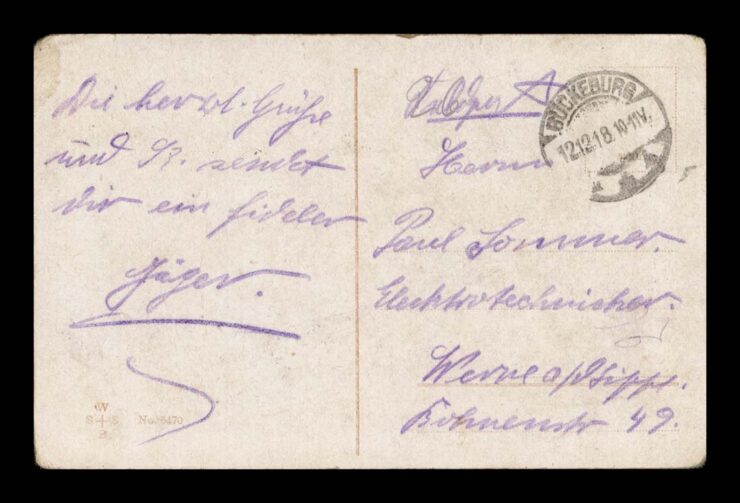 Die herzl. Grüße
und K. sendet
dir ein fideler
Jäger.
W
No. 5470
BÜCKEBURG
12.12.18.10-11V.
Herrn
Paul Sommer.
Elecktrotechnicker.
Werne a/d Lippe.
49.